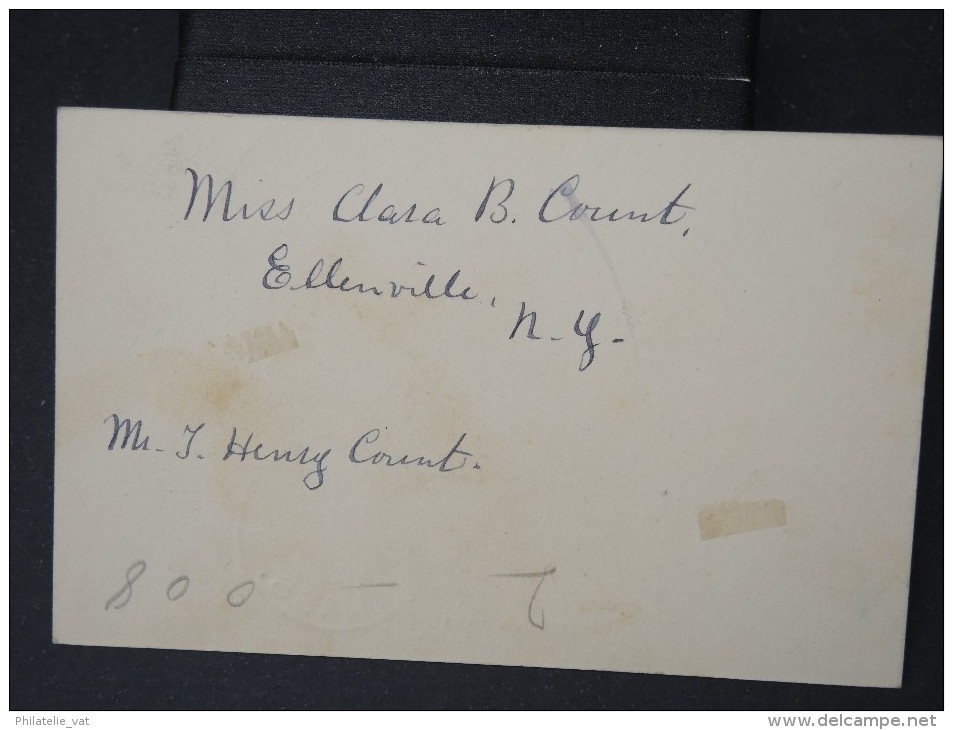 Miss Clara B. Count,
Ellenville,
N. Y.
Mr. J. Henry Count.
800 –
Philatelie_vat
www.delcampe.net